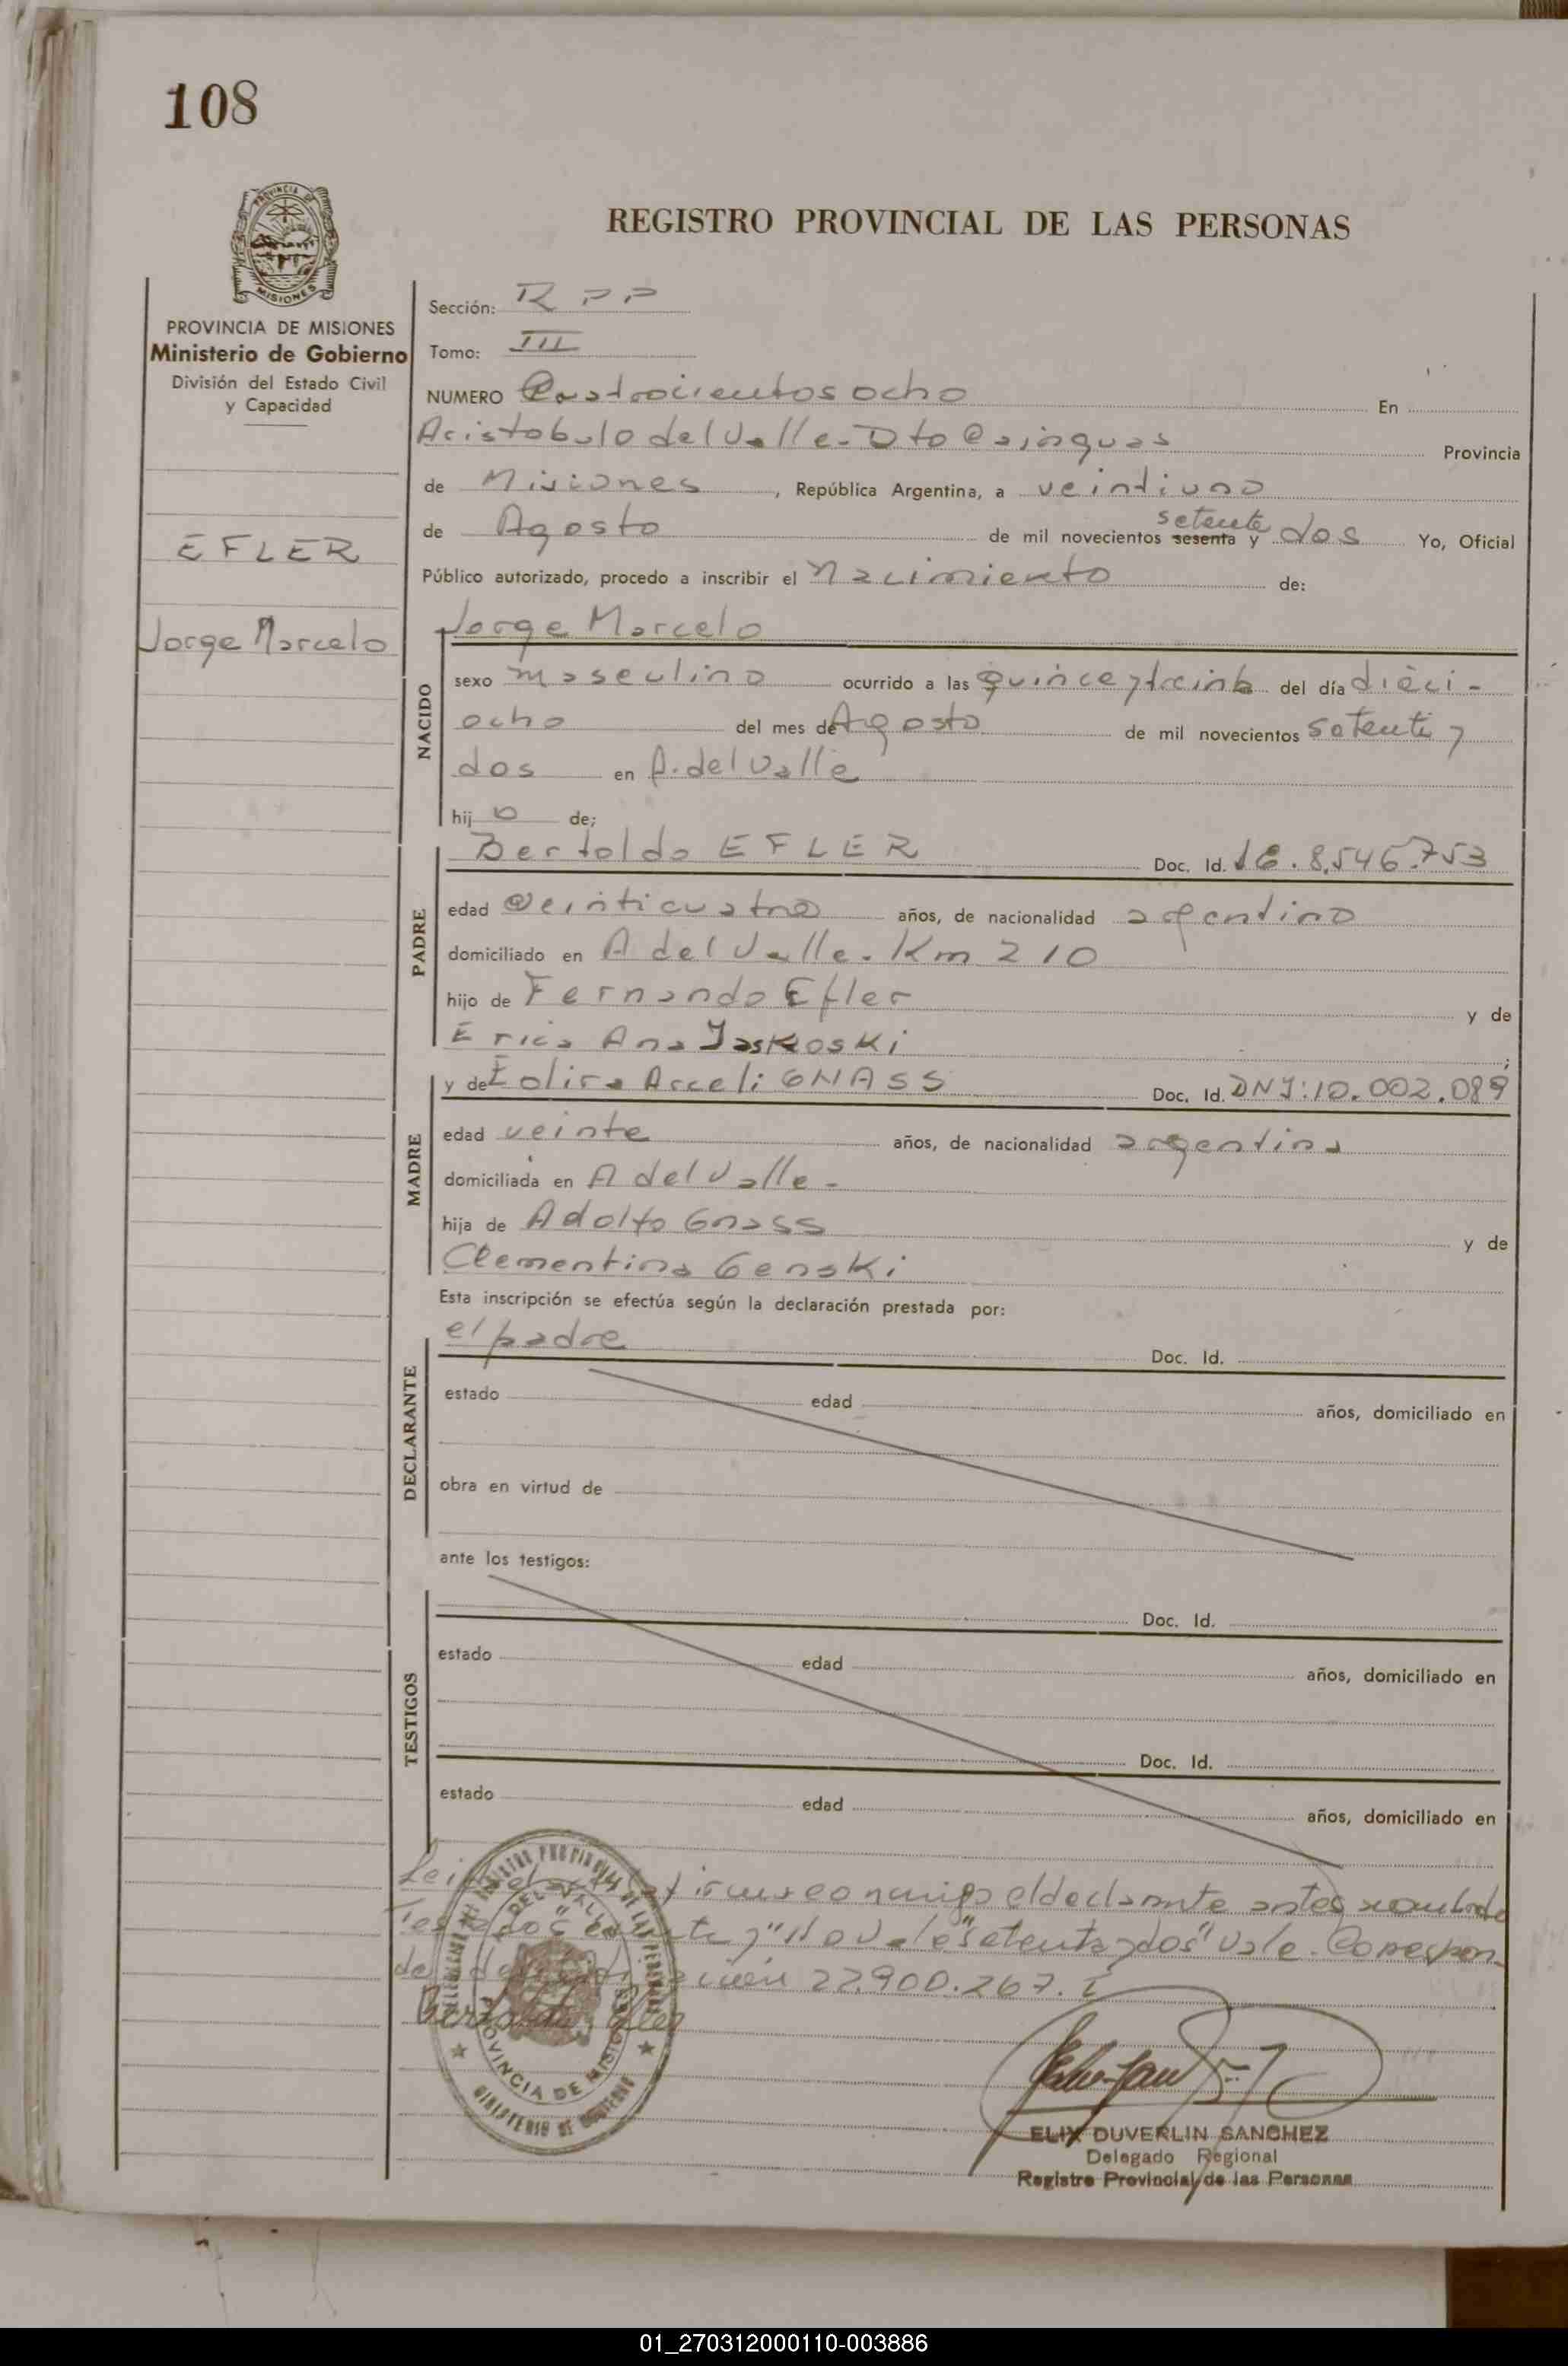 108
PROVINCIA DE MISIONES
Ministerio de Gobierno
División del Estado Civil
y Capacidad
EFLER
Jorge Marcelo
REGISTRO PROVINCIAL DE LAS PERSONAS
Sección: R P P
Tomo: III
NUMERO Cuatrocientos ocho En
Aristobulo del Valle - Dto Cainguas Provincia
de Misiones, República Argentina, a veintiuno
de Agosto de mil novecientos sesenta setenta y dos Yo, Oficial
Público autorizado, procedo a inscribir el Nacimiento de:
NACIDO
Jorge Marcelo
sexo masculino ocurrido a las quince y treinta del día dieci-
ocho del mes de Agosto de mil novecientos setenta y
dos en A. del Valle
hijo de;
PADRE
Bertoldo EFLER Doc. Id. 8.546.753
edad veinticuatro años, de nacionalidad argentino
domiciliado en A del Valle - Km 210
hijo de Fernando Efler y de
Erica Ana Jaskoski;
MADRE
y de Araceli GNASS Doc. Id. DNI: 10.002.089
edad veinte años, de nacionalidad argentina
domiciliada en A del Valle -
hija de Adolfo Gnass y de
Clementina Genski
Esta inscripción se efectúa según la declaración prestada por:
DECLARANTE
el padre Doc. Id.
estado edad años, domiciliado en
obra en virtud de
ante los testigos:
TESTIGOS
Doc. Id.
estado edad años, domiciliado en
Doc. Id.
estado edad años, domiciliado en
conmigo el declarante antes nombrado
"No vale "setenta y dos" vale. Correspon-
de 22.900.267.
PROVINCIA DE MISIONES
MINISTERIO DE GOBIERNO
ELIX DUVERLIN SANCHEZ
Delegado Regional
Registro Provincial de las Personas
01_270312000110-003886